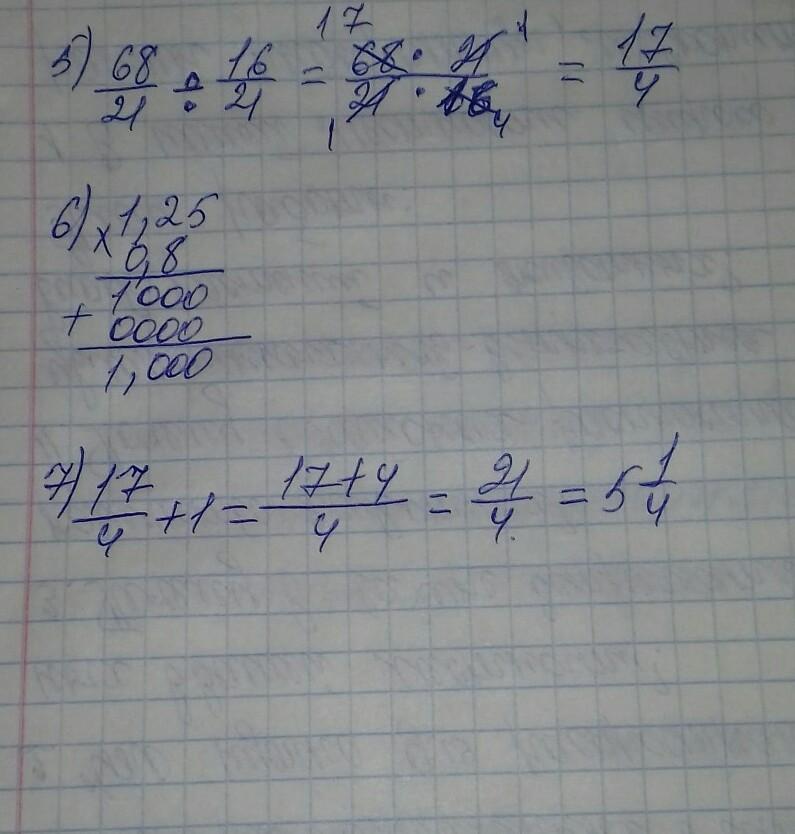 5) 68/21 ÷ 16/21 = 68 · 21/21 · 16 = 17/4
17 1
1 4
6) × 1,25
0,8
1000
+ 0000
1,000
7) 17/4 + 1 = 17+4/4 = 21/4 = 5 1/4